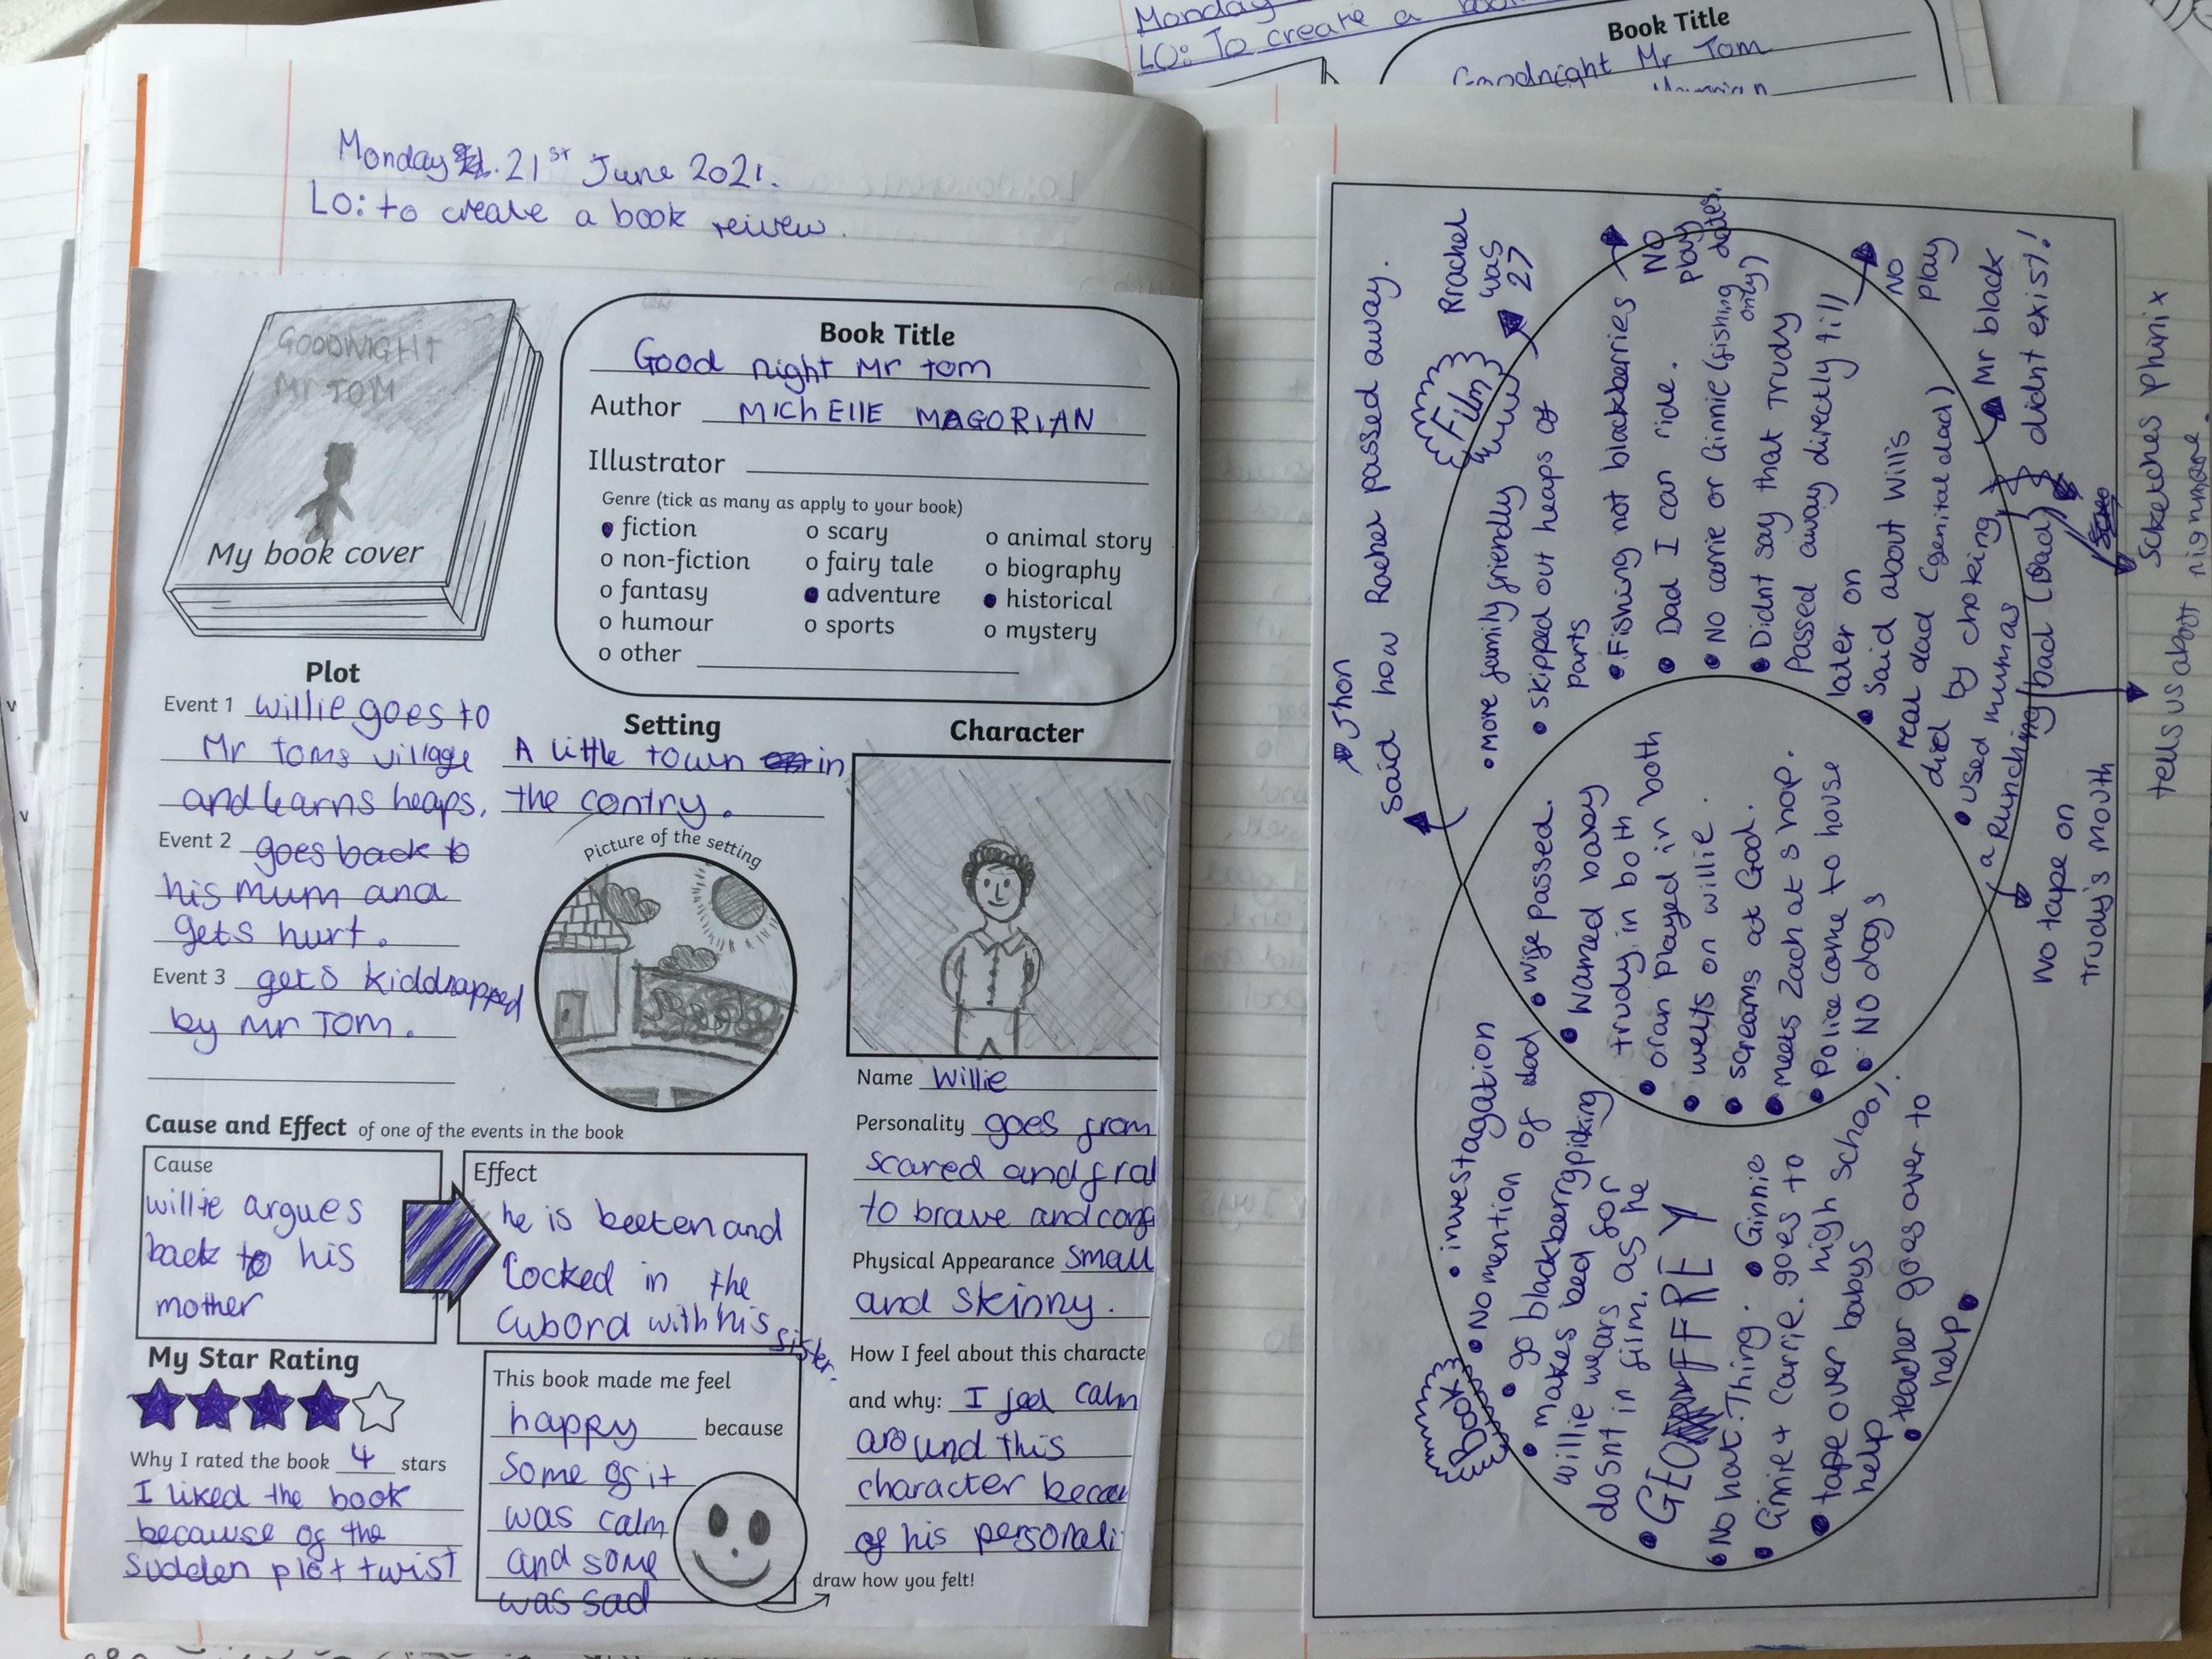 Monday 21st June 2021.
LO: to create a book reivew.
GOODNIGHT
Mr TOM
My book cover
Book Title
Good night Mr tom
Author MIChEllE MAGORIAN
Illustrator
Genre (tick as many as apply to your book)
fiction
o non-fiction
o fantasy
o humour
o other
o scary
o fairy tale
adventure
o sports
o animal story
o biography
historical
o mystery
Plot
Event 1 willie goes to
Mr toms village
and learns heaps.
Event 2 goes back to
his mum and
gets hurt.
Event 3 gets kiddnapped
by mr TOM.
Setting
A little town in
the contry.
Picture of the setting
Character
Name Willie
Personality goes from
scared and fral
to brave and conf
Physical Appearance small
and skinny.
How I feel about this characte
and why: I feel calm
around this
character becau
of his personali
Cause and Effect of one of the events in the book
Cause
willie argues
back to his
mother
Effect
he is beeten and
locked in the
cubord with his sister.
My Star Rating
Why I rated the book 4 stars
I liked the book
because of the
sudden plot twist
This book made me feel
happy because
some of it
was calm
and some
was sad
draw how you felt!
Monday
LO: To create a
Book Title
Goodnight Mr Tom
Jhon
said how Racher passed away.
Film
Rrachel
was
27
• more family friendly
• skipped out heaps of
parts
• Fishing not blackberries
NO
play
dates.
• Dad I can ride.
• NO carrie or Ginnie (fishing
only)
• Didnt say that trudy
passed away directly till
later on
NO
play
• Said about Wills
real dad (genital dad)
died by choking
Mr black
didnt exist!
• used mum as
a Runching/bad (Dad)
sketches phinix
tells us about nigmare
No tape on
trudy's mouth
• wife passed.
• Named baby
trudy in both
• oran played in both
• welts on willie.
• screams at God.
• meets Zach at shop.
• Police come to house
• NO dogs
Book
• investagation
• No mention of dad
• go blackberrypicking
• makes bed for
willie wears as he
dosnt in film.
• GEOFFREY
• No hat. Thing.
• Ginnie
• Ginnie + Carrie. goes to
high school,
• tape over babys
help
• teacher goes over to
help